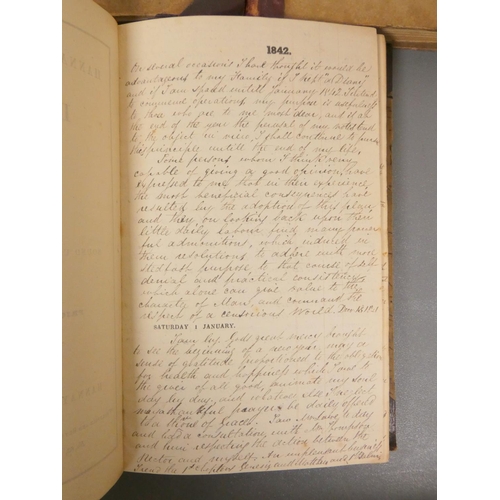 1842.
On several occasions I have thought it would be
advantageous to my Family if I kept a Diary
and if I am spared until January 1842 I intend
to commence operations my purpose is usefulness
to those who are to me most dear, and if at
the end of the year the perusal of my notes tend
to the object in view, I shall continue to pursue
this principle untill the end of my life.
Some persons whom I think very
capable of giving a good opinion, have
expressed to me, that in their experience
the most beneficial consequences have
resulted by the adoption of this plan,
and they on looking back upon their
little daily labour find many power
ful admonitions, which induced in
them resolutions to adhere with more
stedfast purpose, to that course of self
denial and practical consistency
which alone can give value to the
character of Man, and command the
respect of a censorious World. Dec
SATURDAY 1 JANUARY.
I am by Gods great mercy brought
to see the beginning of a new year may a
sense of gratitude proportioned to the
for health and happiness which I owe to
the giver of all good, animate my soul
day by day, and whatever else I neglect
may a thankful prayer be daily offered
to a throne of Grace. I am Anxious to day
and had a consultation with Mr
and him respecting the action between the
Rector and myself.
I read the 1st chapters Genesis and Matthew